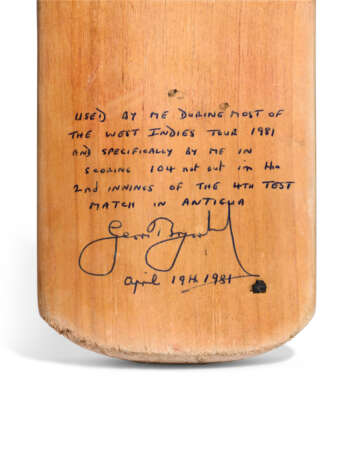 USED BY ME DURING MOST OF
THE WEST INDIES TOUR 1981
AND SPECIFICALLY BY ME IN
SCORING 104 not out in the
2nd INNINGS OF THE 4TH TEST
MATCH IN ANTIGUA
April 19th 1981